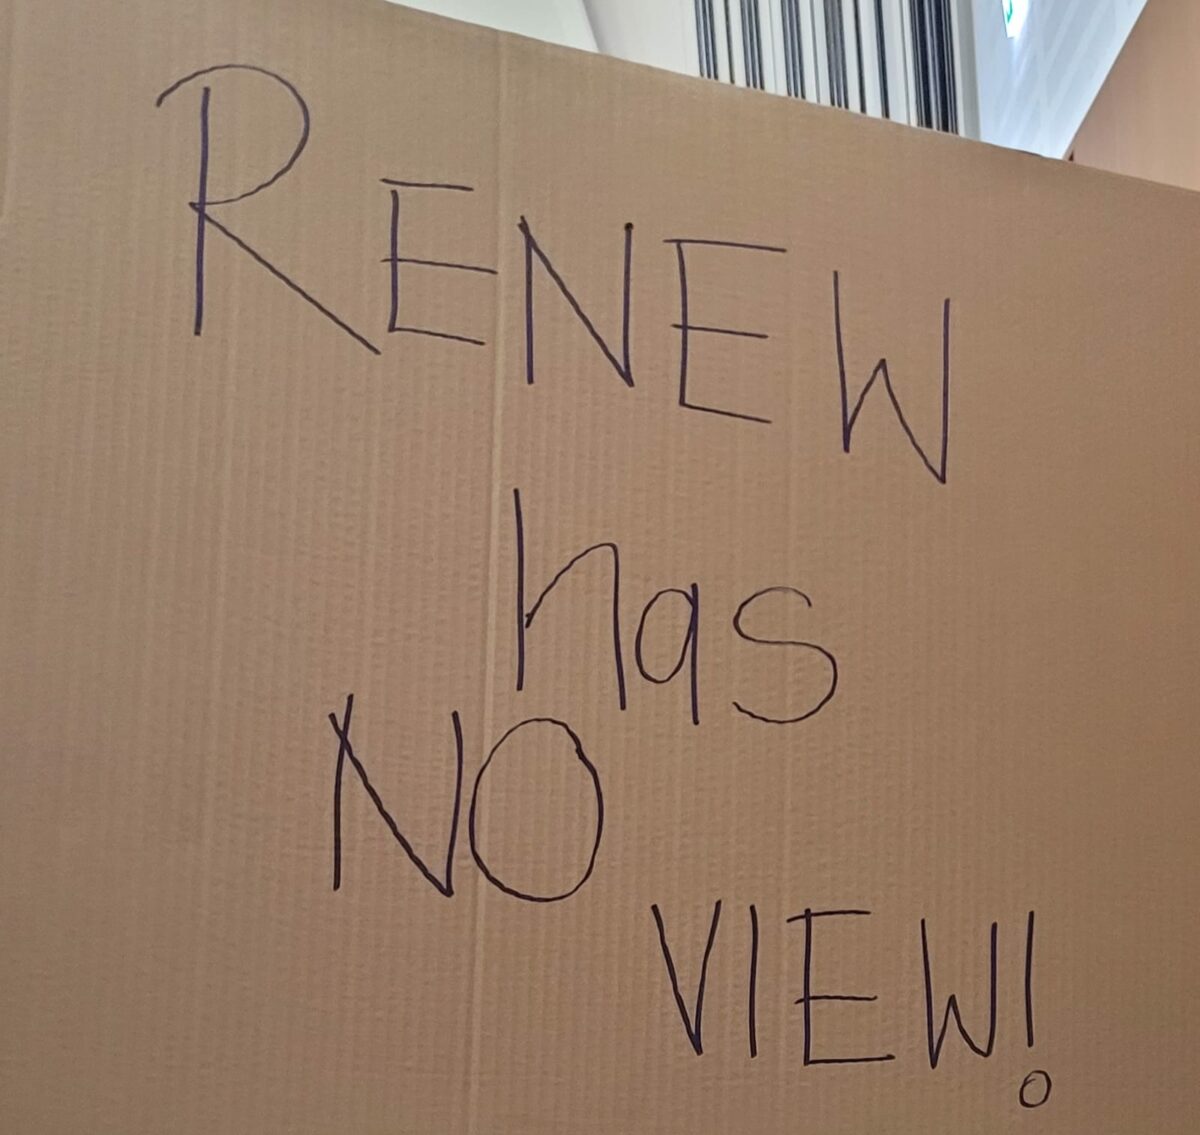 RENEW
has
NO
VIEW!